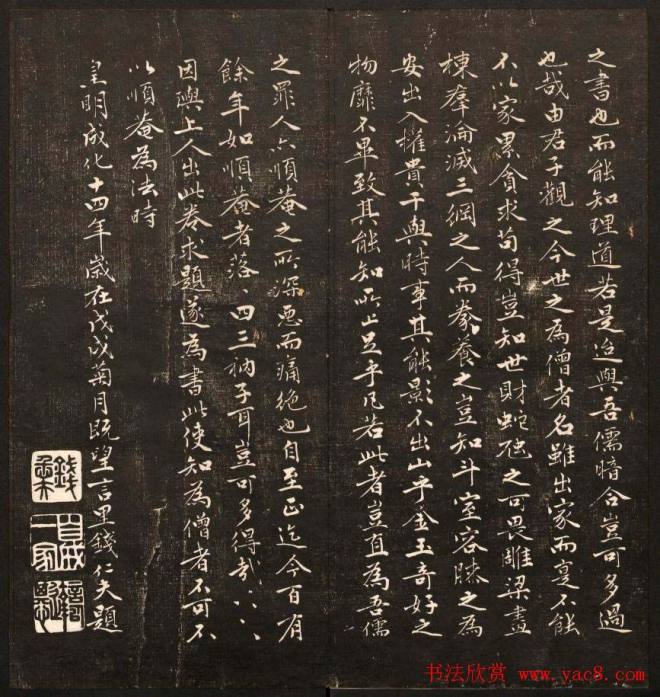 之書也而能知理道若是迨與吾儒暗合豈可多過
也哉由君子觀之今世之為僧者名雖出家而寔不能
不以家累貪求苟得豈知世財蛇虺之可畏雕梁畫
棟羣淪滅三綱之人而豢養之豈知斗室容膝之為
安出入權貴干與時事其能影不出山乎金玉奇好之
物靡不畢致其能知所止足乎凡若此者豈直為吾儒
之罪人亦順菴之所深惡而痛絕也自至正迄今百有
餘年如順菴者落、四三衲子耳豈可多得哉、、、
因與上人出此卷求題遂為書此使知為僧者不可不
以順菴為法時
皇明成化十四年歲在戊戌菊月既望言里錢仁夫題
书法欣赏 www.yac8.com